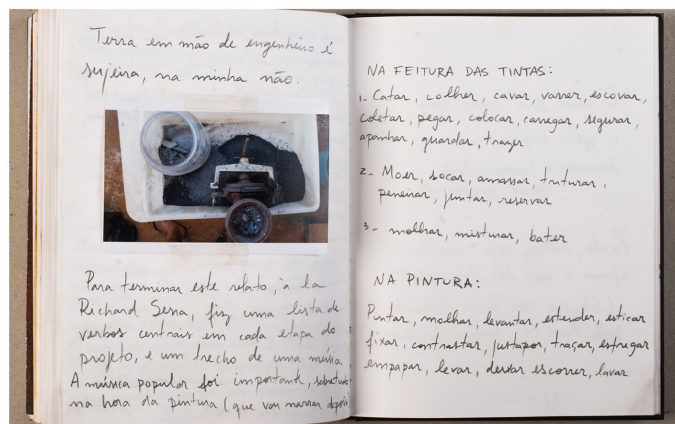 Terra em mão de engenheiro é
sujeira, na minha não.
Para terminar este relato, à la
Richard Serra, fiz uma lista de
verbos centrais em cada etapa do
projeto, e um trecho de uma música.
A música popular foi importante, sobretudo
na hora da pintura (que vou narrar depois
NA FEITURA DAS TINTAS:
1. Catar, colher, cavar, varrer, escovar,
coletar, pegar, colocar, carregar, segurar,
apanhar, guardar, trazer
2- Moer, socar, amassar, triturar,
peneirar, juntar, reservar
3- molhar, misturar, bater
NA PINTURA:
Pintar, molhar, levantar, estender, esticar
fixar, contrastar, justapor, traçar, esfregar
empapar, levar, deixar escorrer, lavar